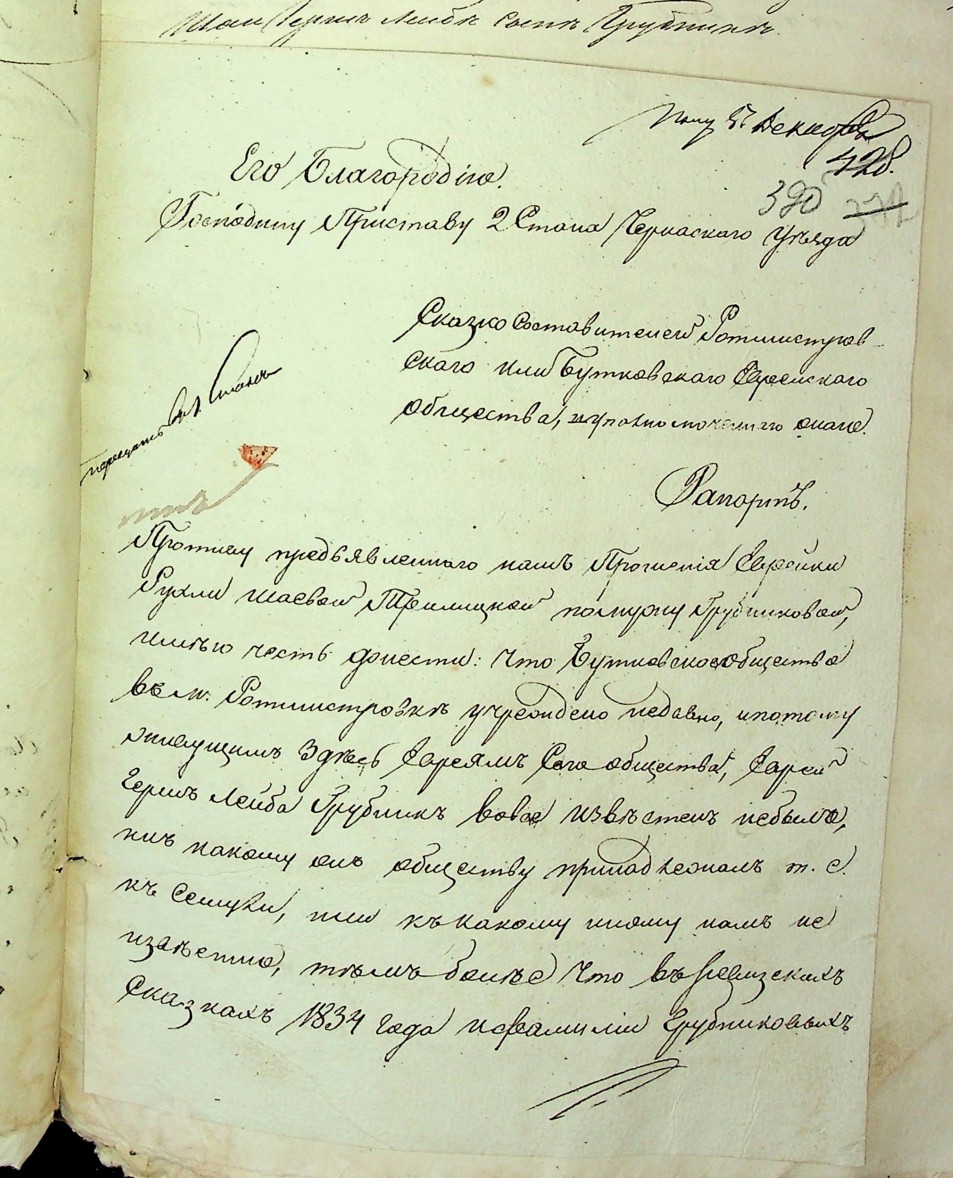 Шая Герш Лейбы сынъ Грубникъ.
Декабря
428.
390
Его Благородію.
Господину Приставу 2 Стана Черкаскаго Уѣзда
Сказко составителей Ротмистров-
скаго или Бутковскаго Еврейскаго
общества, и уполномоченнаго онаго.
Рапортъ.
Противу предъявленнаго намъ Прошенія Еврейки
Рухли Шаевой Трилицкой Грубниковой,
имѣю честь донести: что Бутковское общество
въ м. Ротмистровкѣ учреждено недавно, и потому
живущимъ здѣсь Евреямъ Сего общества, Еврей
Гершъ Лейба Грубникъ вовсе извѣстенъ небылъ,
какому онъ обществу принадлежалъ т. е.
къ сему ли, или къ какому иному намъ не
извѣстно, тѣмъ болѣе что въ Ревизскихъ
Сказкахъ 1834 года и фамиліи Грубниковыхъ